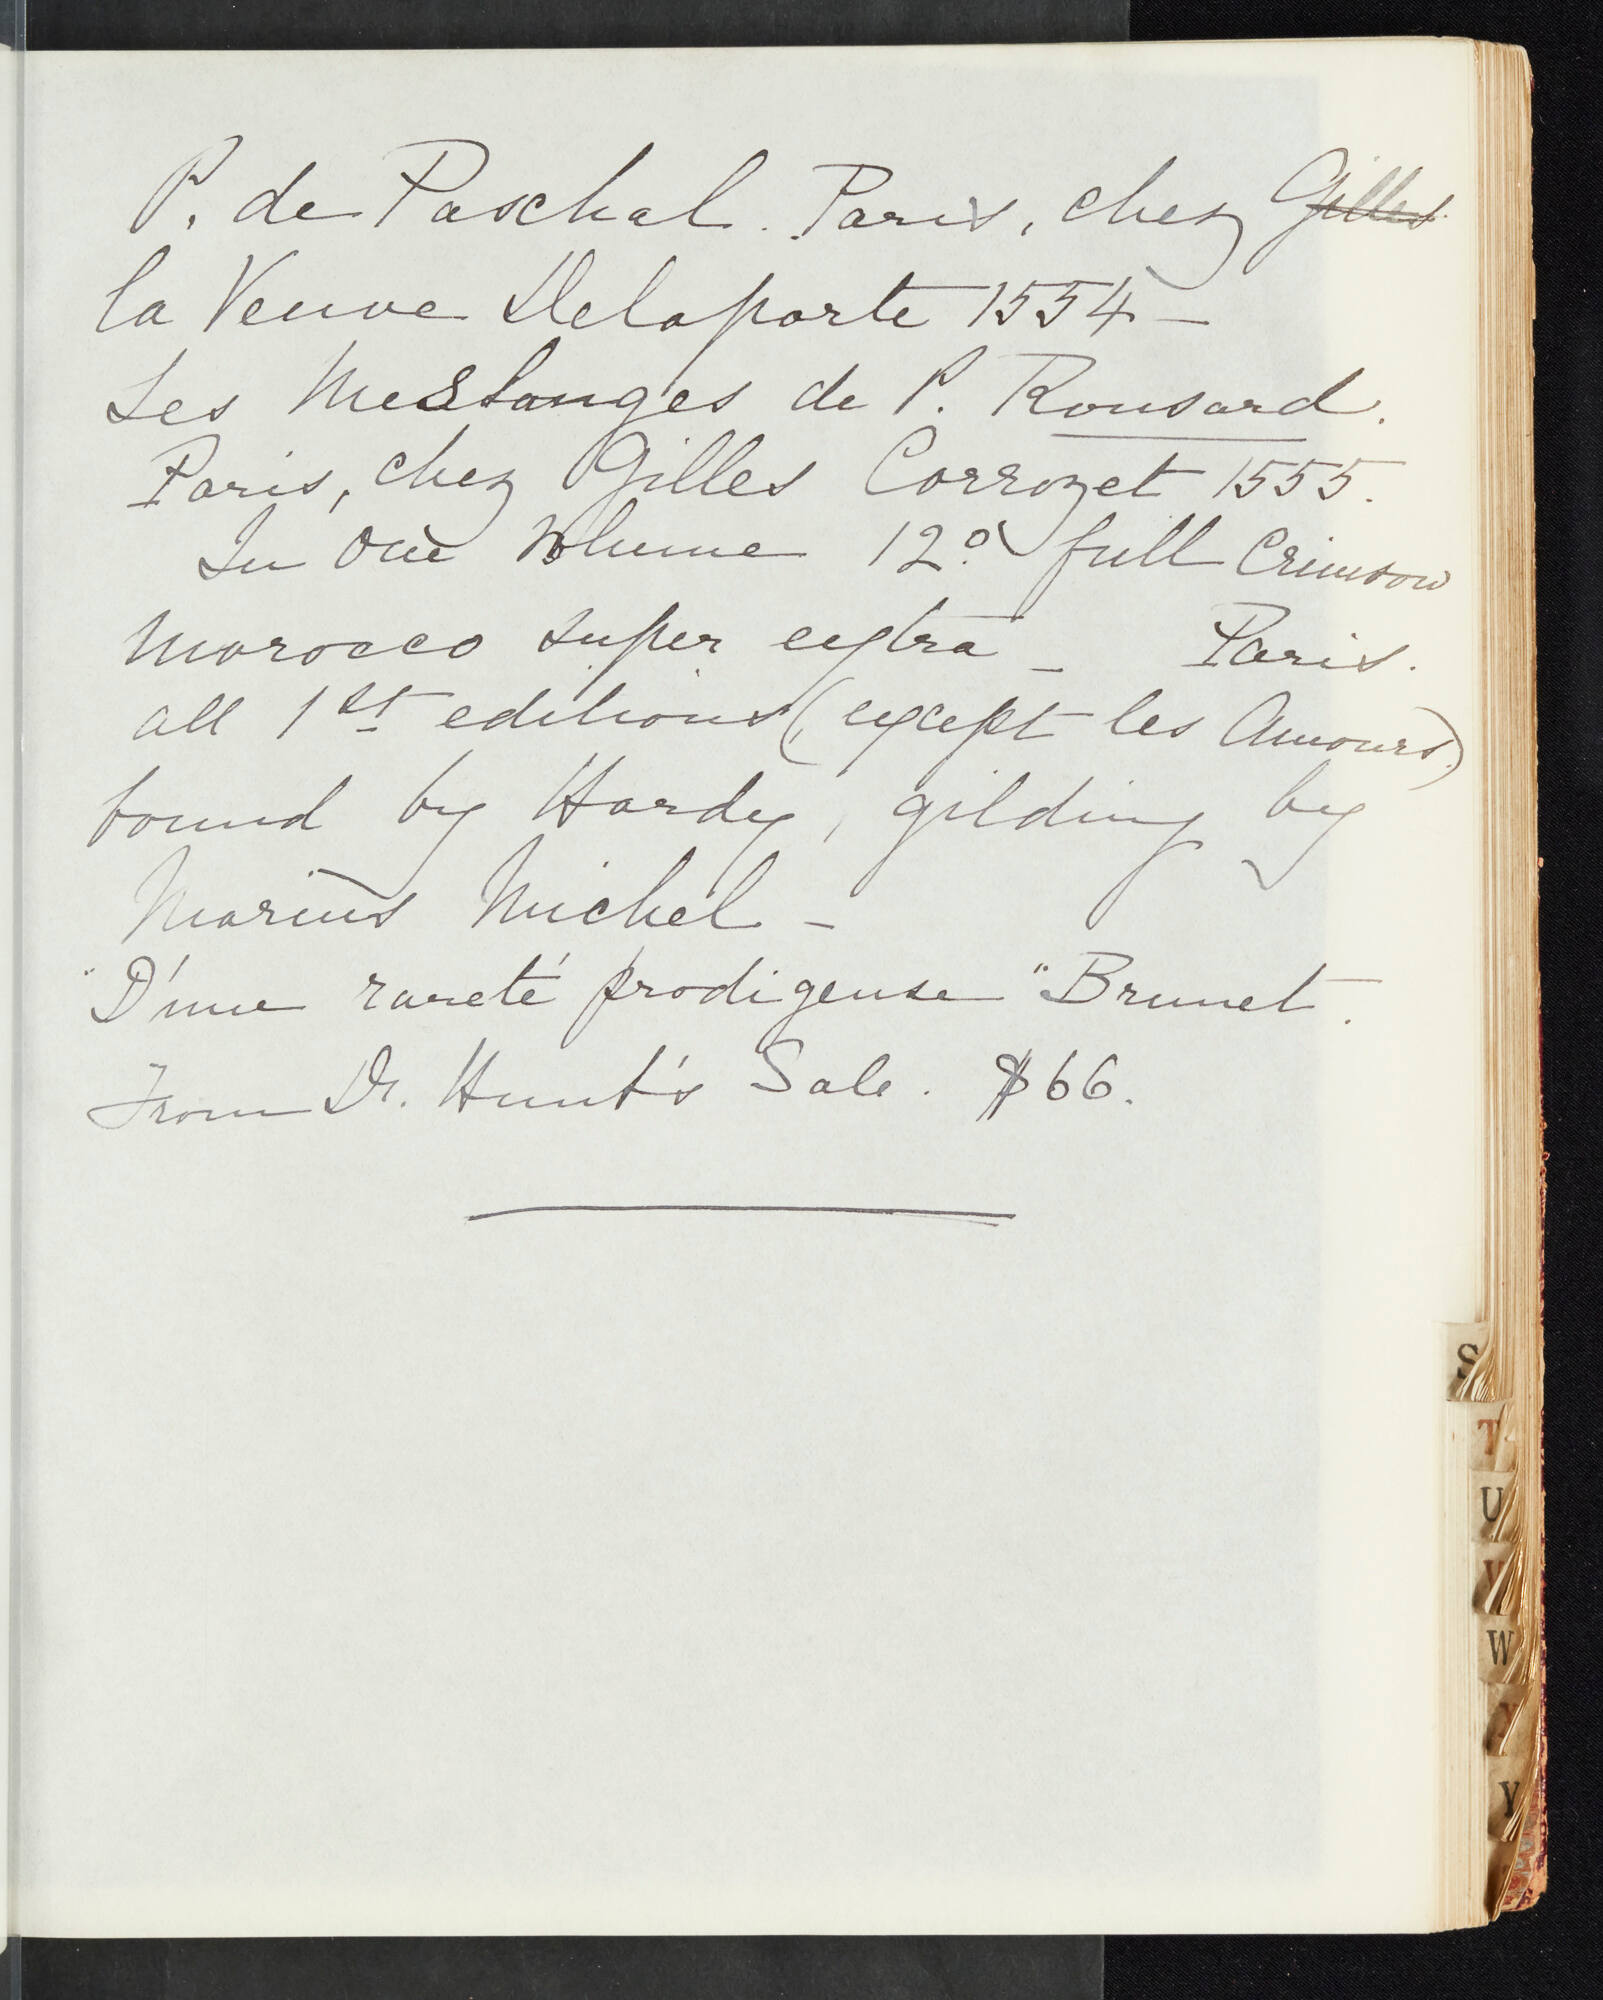 P. de Paschal. Paris, chez Gilles
la Veuve Delaporte 1554 –
Les Meslanges de P. Ronsard.
Paris, chez Gilles Corrozet 1555.
In one volume 12º full Crimson
Morocco super extra – Paris.
all 1st editions (except les Amours.)
bound by Hardy, gilding by
Marius Michel –
"D'une rareté prodigeuse" Brunet.
From Dr. Hunt's Sale. $66.
S
T
U
V
W
X
Y